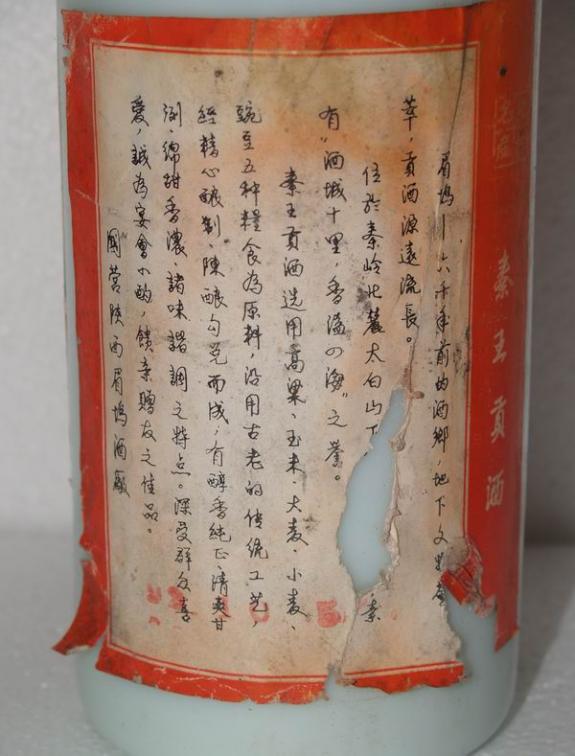 秦王贡酒
眉坞川六千年前的酒鄉,地下文物荟
萃,貢酒源遠流長。
位於秦岭北麓太白山下
秦
有“酒城十里,香溢四海”之誉。
秦王貢酒选用高粱、玉米、大麦、小麦、
豌豆五种糧食為原料,沿用古老的传统工艺,
經精心釀制、陳釀勾兑而成,有醇香純正、清爽甘
洌、绵甜香濃、諸味諧調之特点。深受群众喜
愛,誠為宴會小酌,馈亲赠友之佳品。
國营陕西眉坞酒厰